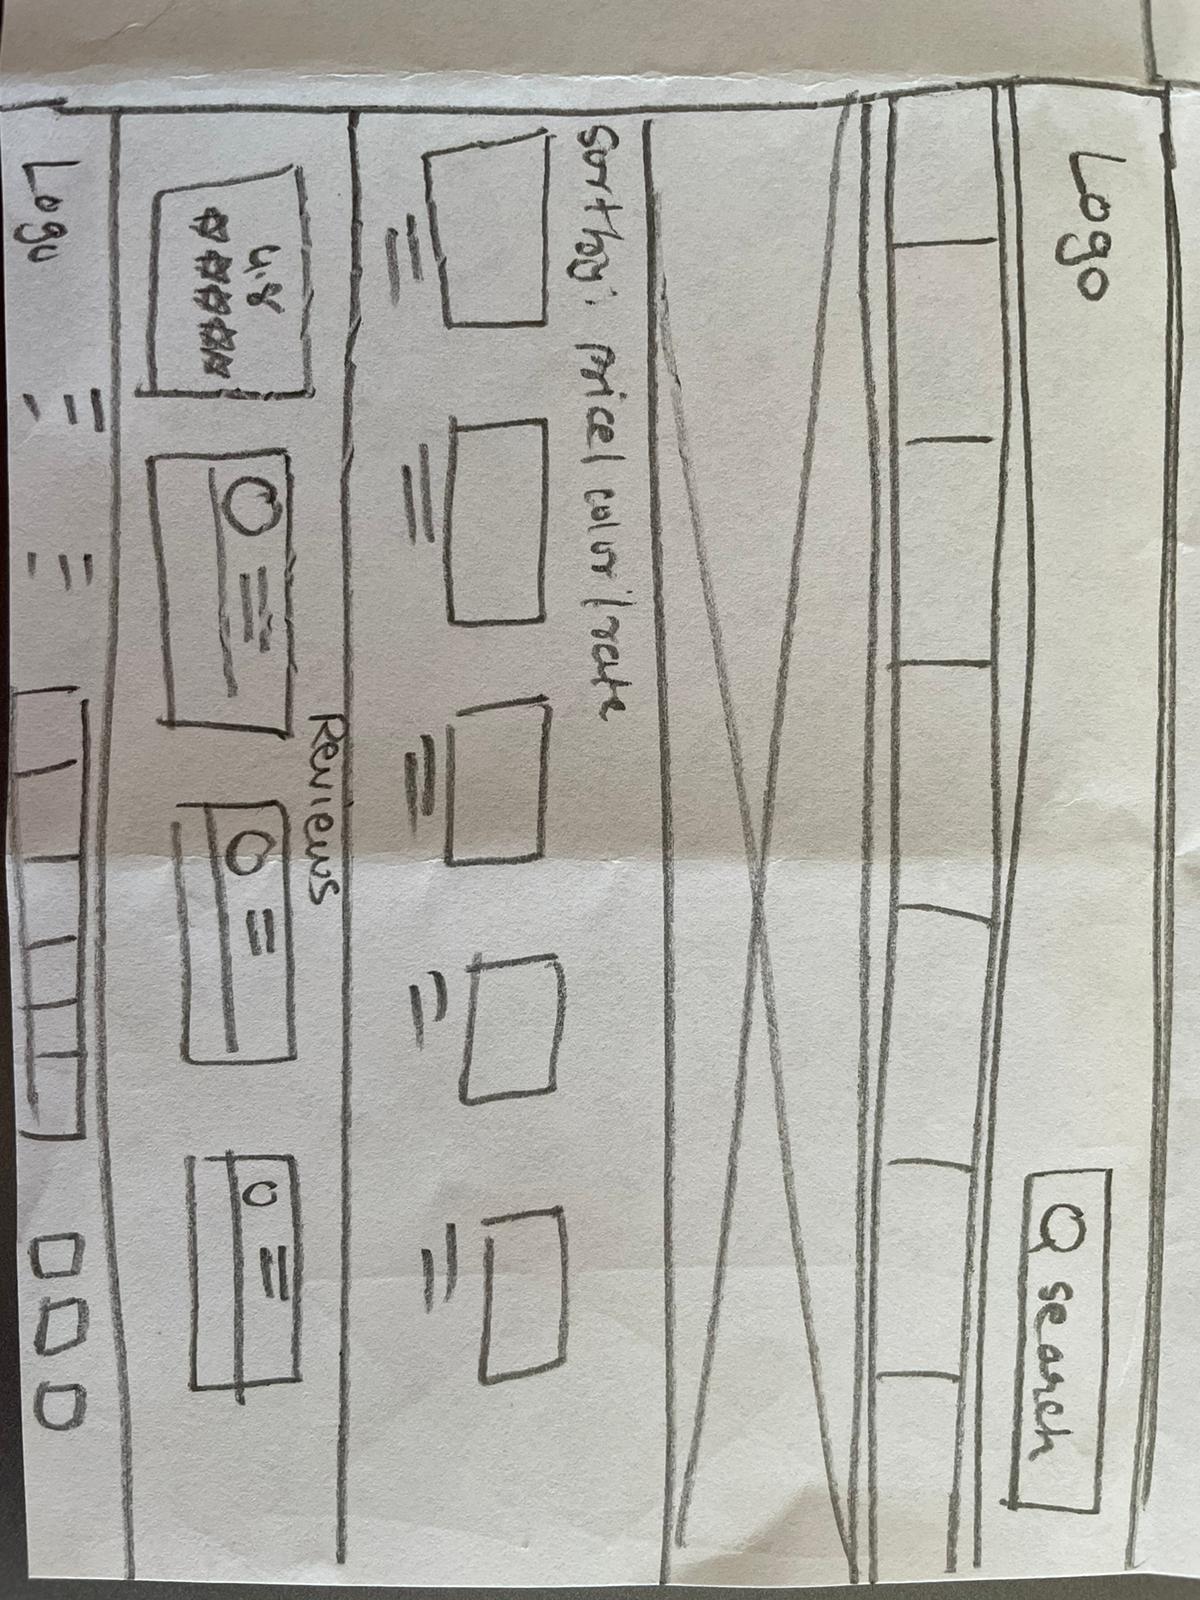 Logo
search
Sortby: price/ color/rate
Reviews
4.8
Logo